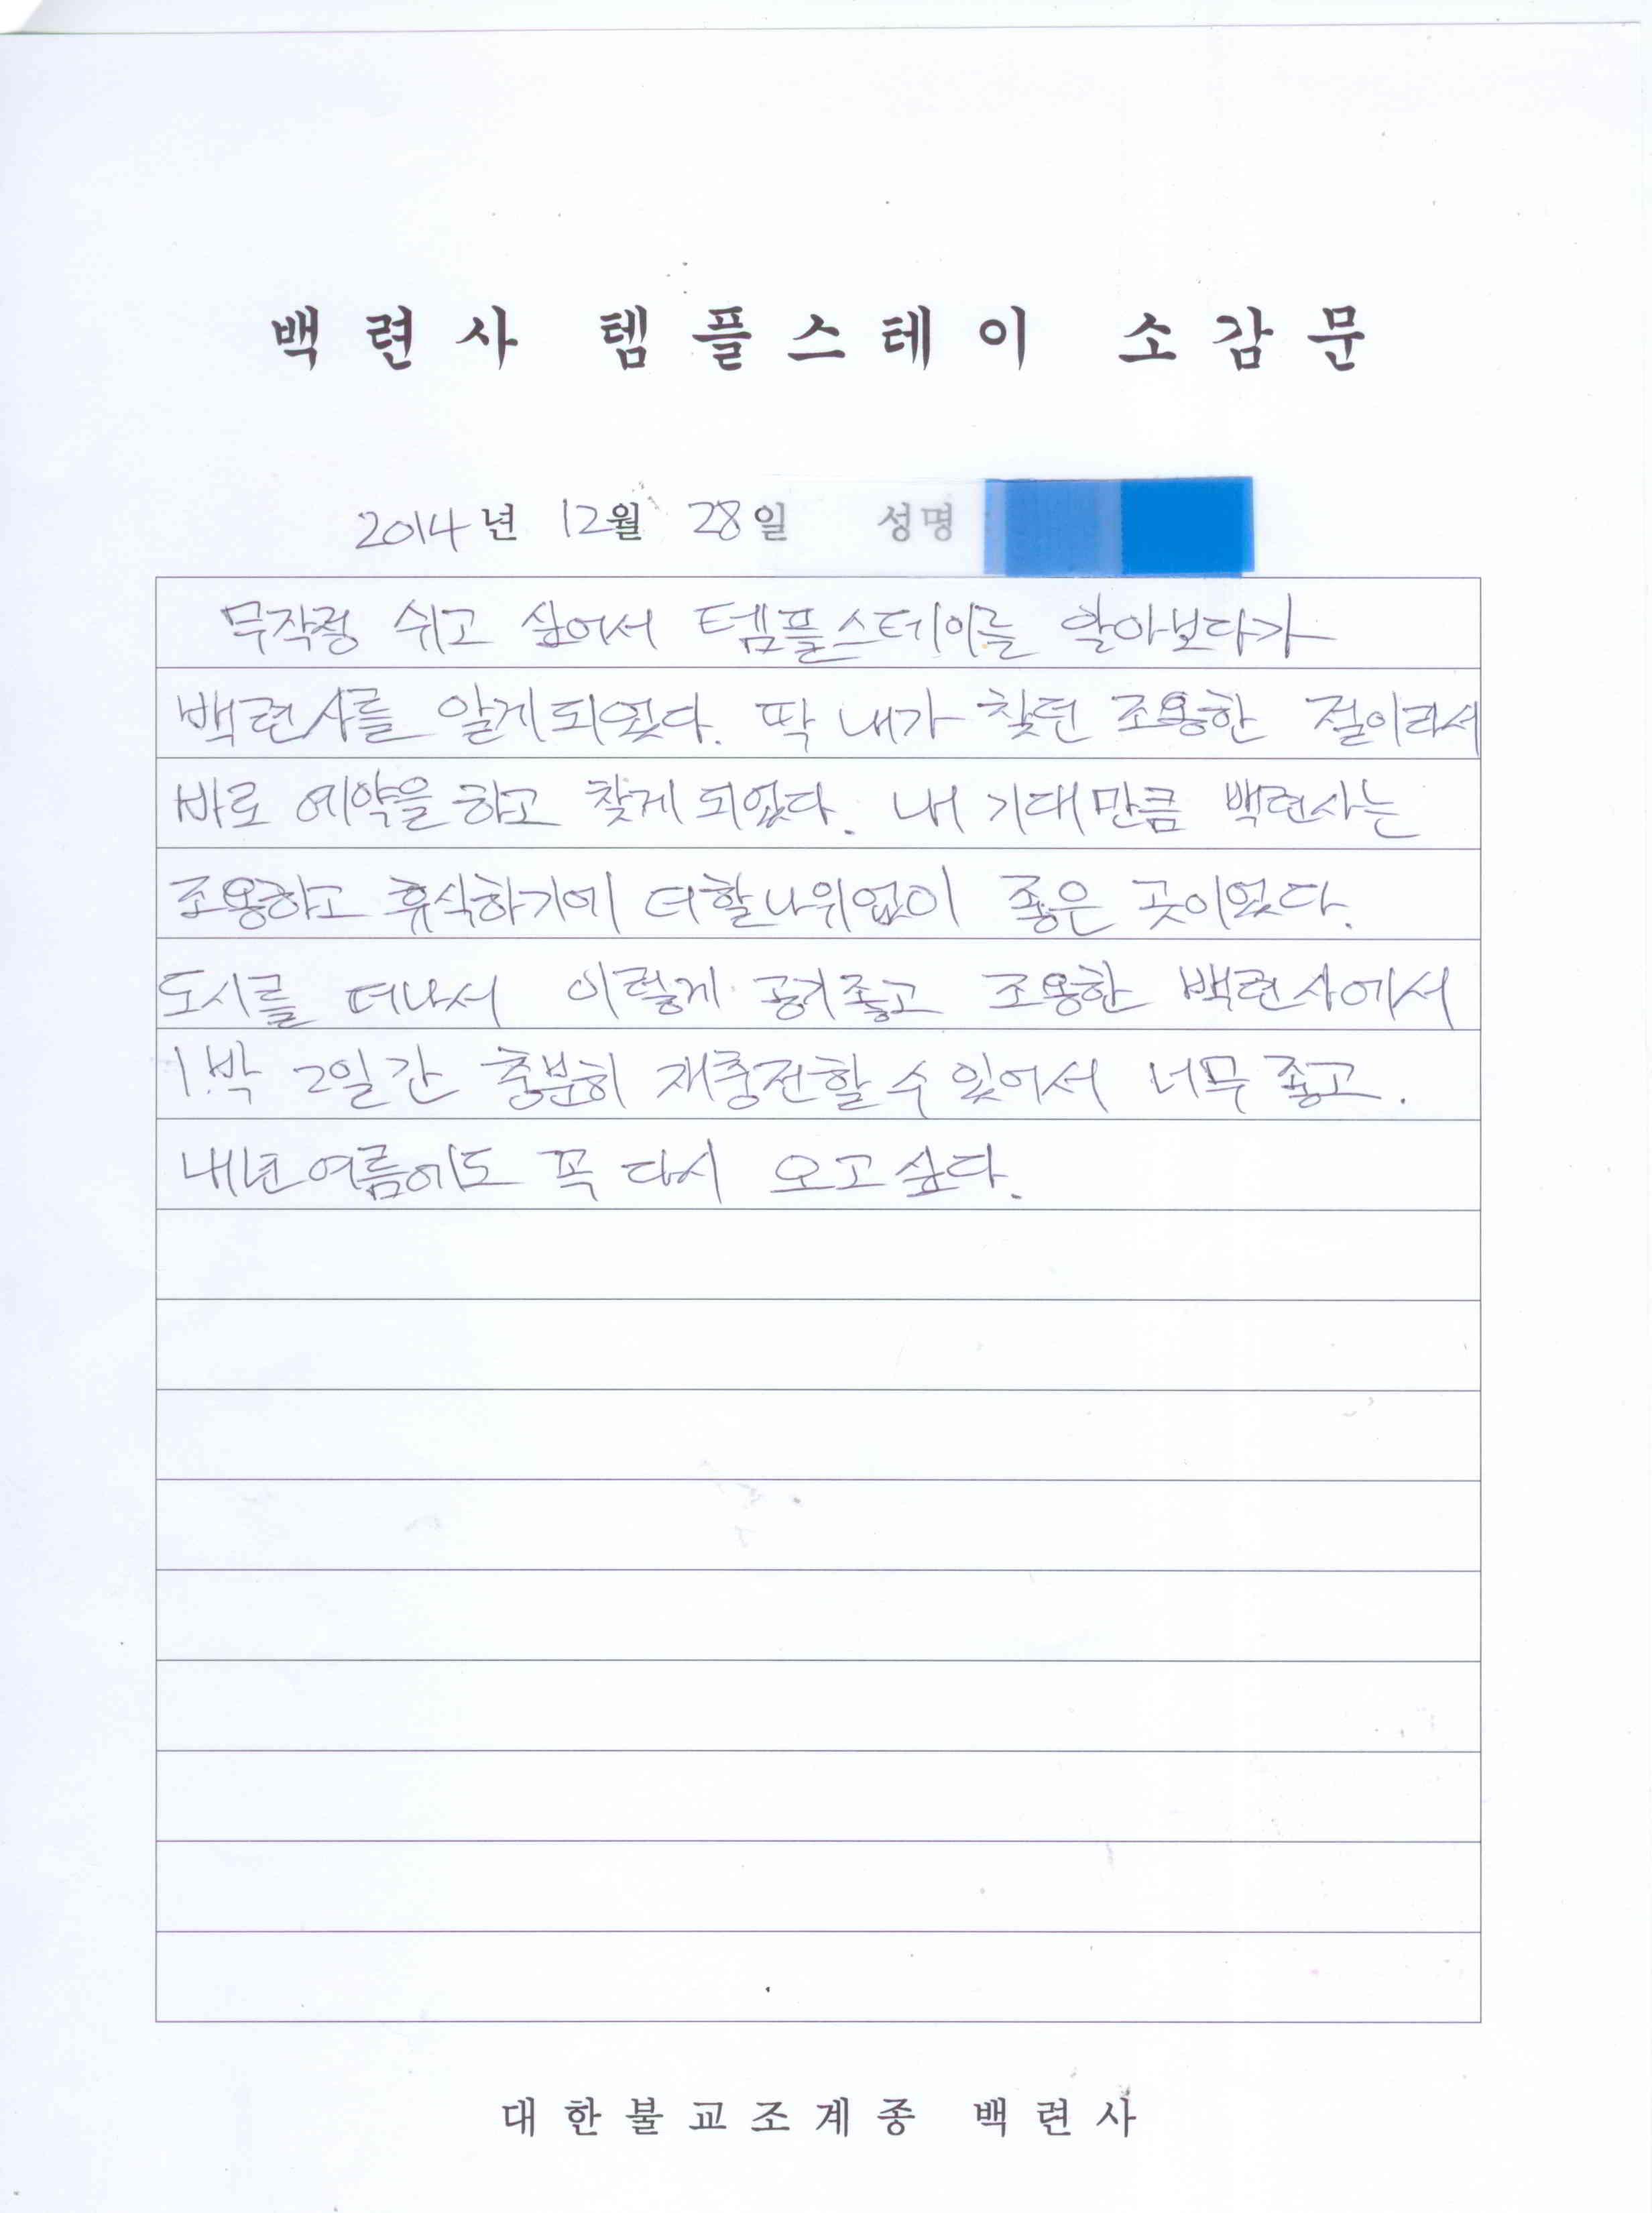 백련사 템플스테이 소감문
2014년 12월 28일 성명
무작정 쉬고 싶어서 템플스테이를 알아보다가
백련사를 알게되었다. 딱 내가 찾던 조용한 절이라서
바로 예약을 하고 찾게 되었다. 내 기대만큼 백련사는
조용하고 휴식하기에 더할나위없이 좋은 곳이었다.
도시를 떠나서 이렇게 공기좋고 조용한 백련사에서
1.박 2일간 충분히 재충전할 수 있어서 너무 좋고.
내년 여름에도 꼭 다시 오고싶다.
대한불교조계종 백련사